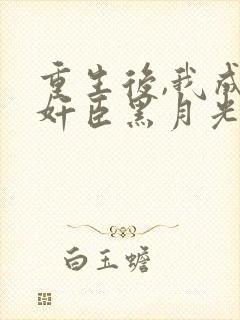 重生後,我成
奸臣黑月光
白玉蟾